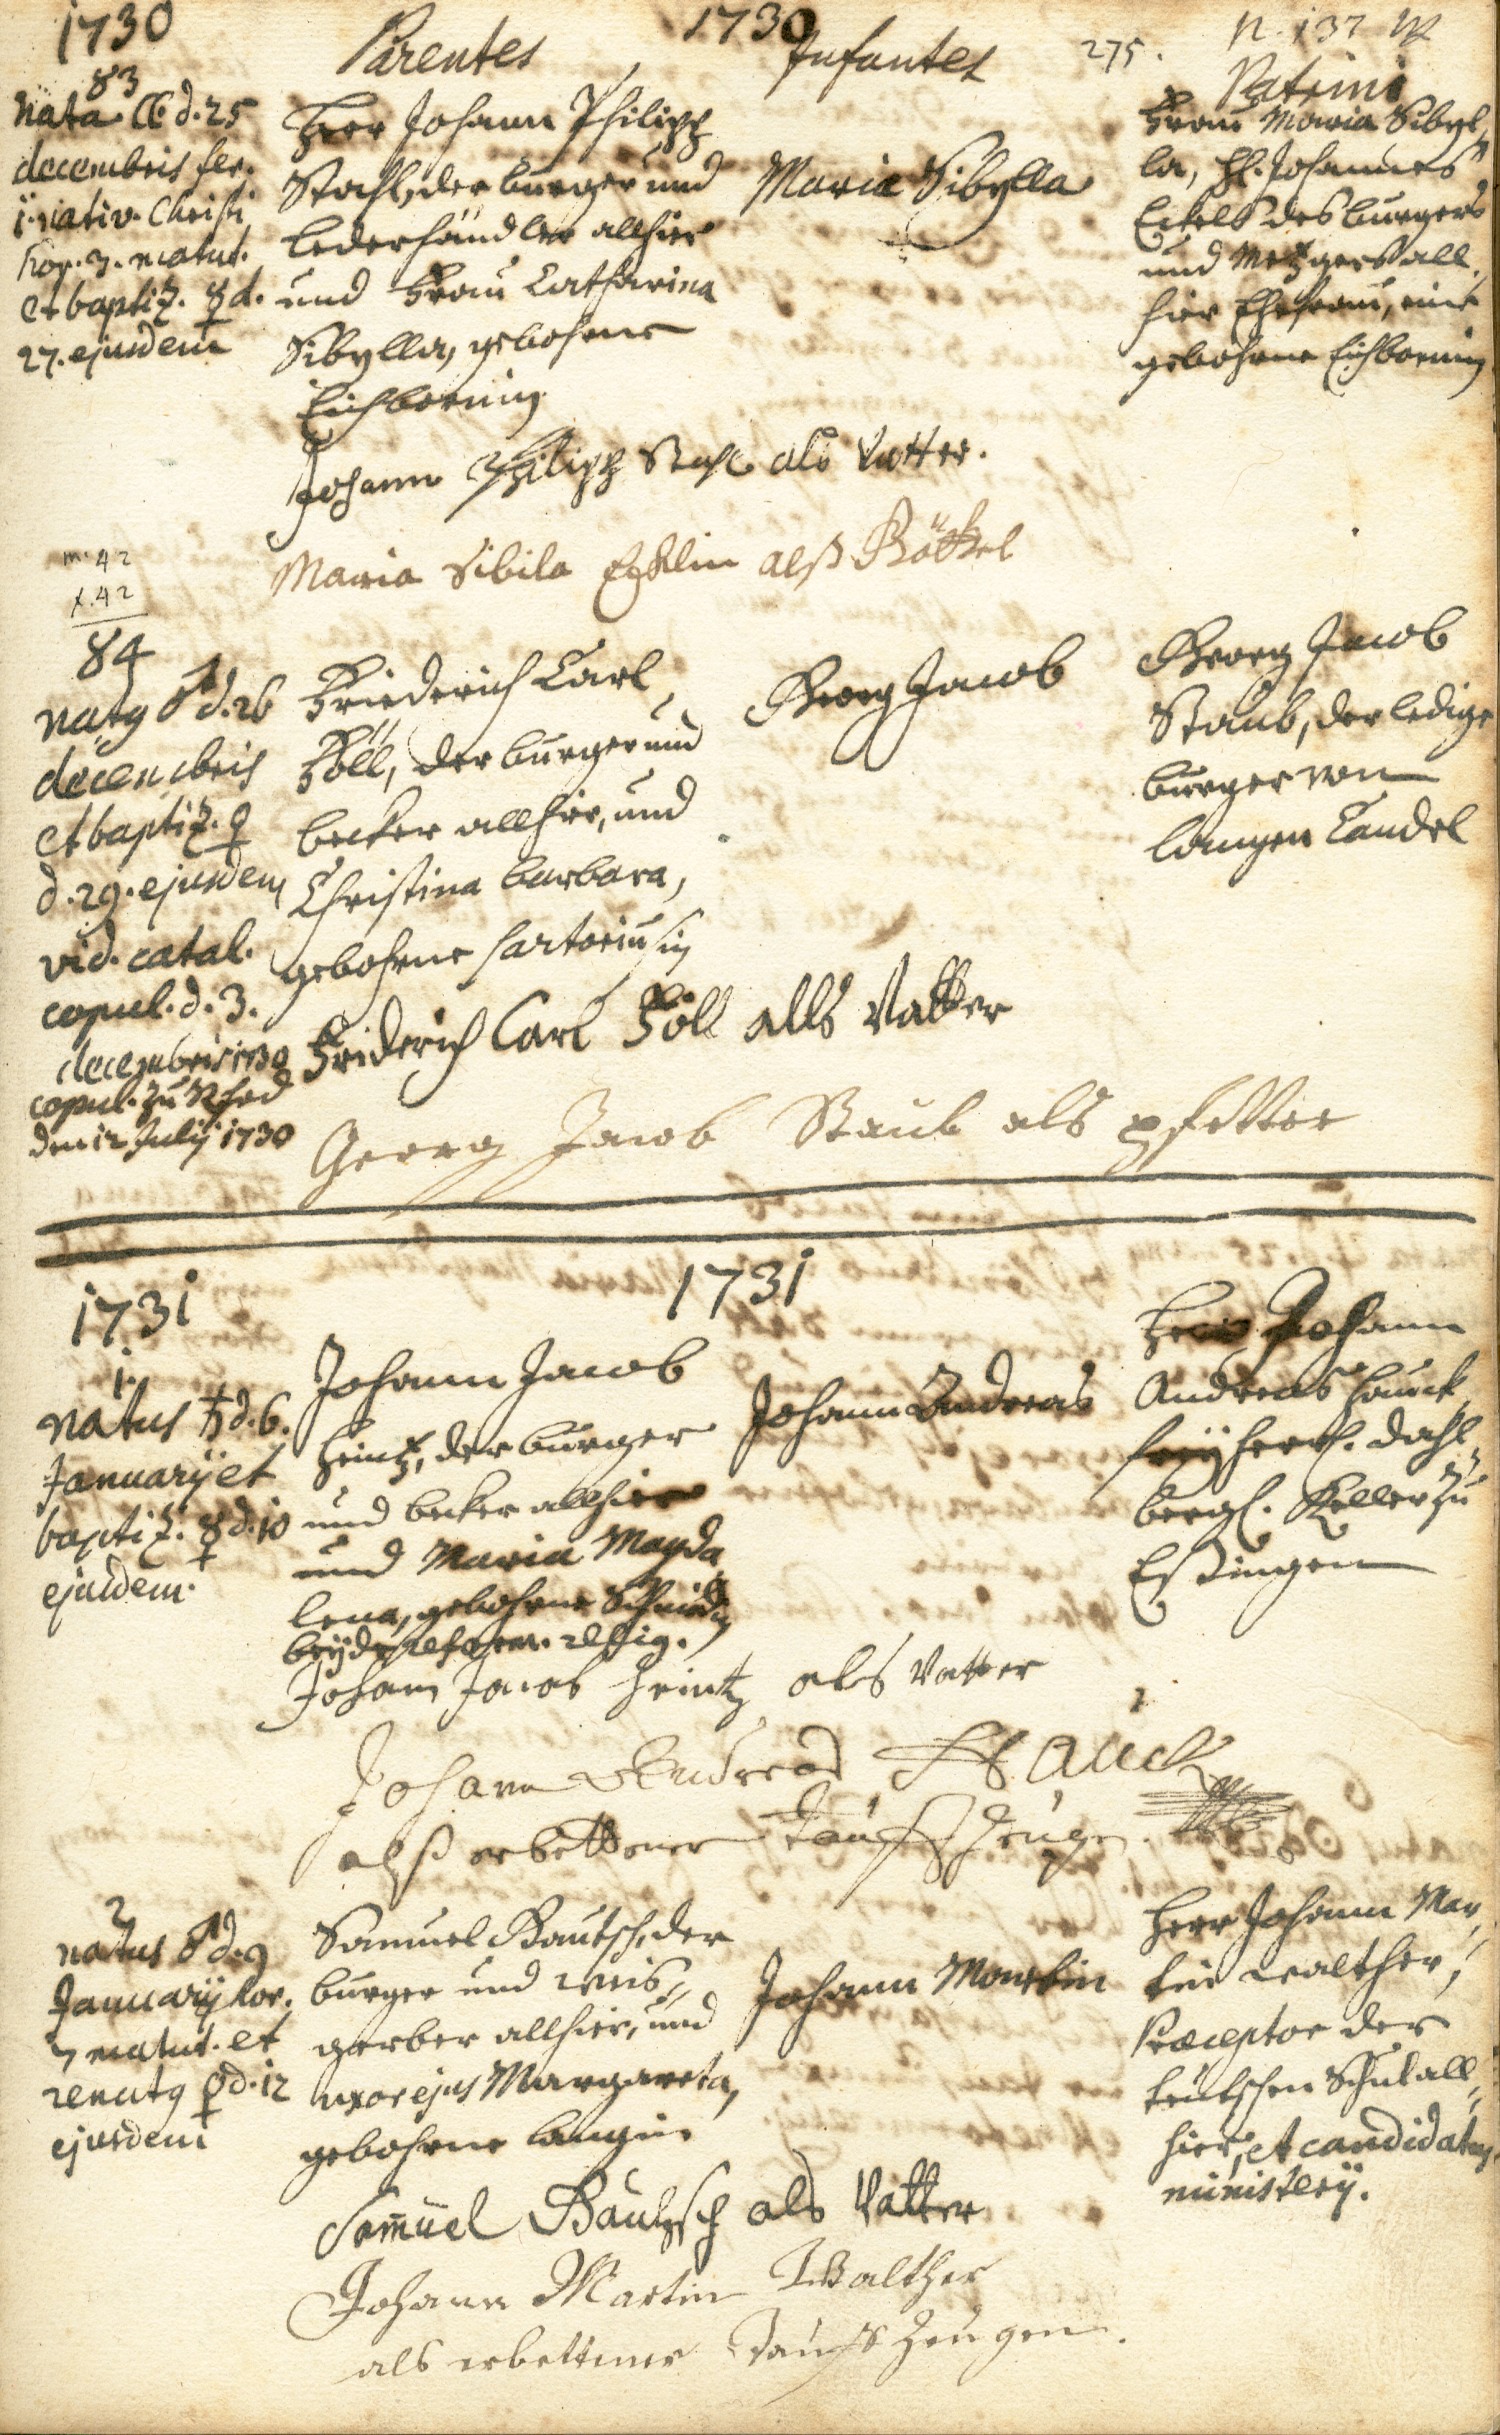 1730
1730
275.
N. 137
Parentes
Infantes
Patrini
83
Nata ☾ d. 25
decembris fer.
nativ. Christi
hor. 3. matut.
et baptiz. ☿ d.
27. ejusdem
Herr Johann Philipp
Stahl, der burger und
lederhändler allhier
und Frau Catharina
Sibylla, gebohrne
Eichbornin
Maria Sibylla
Frau Maria Sibyl„
la, H. Johannes
Eckels des burgers
und Metzgers all„
hier Ehefrau, eine
gebohrne Eichbornin
Johann Philipp Stahl als Vatter.
Maria Sibila als Göttel
m. 42
f. 42
84
natus ♂ d. 26
decembris
et baptiz. ♀
d. 29. ejusdem
vid. catal.
copul. d. 3.
decembris 1730
copul. zu
den 12 Julij 1730
Friederich Carl
Föll, der burger und
becker allhier, und
Christina barbara,
gebohrne sartoriusin
Georg Jacob
Georg Jacob
Staub, der ledige
burger von
langen Candel
Friderich Carl Föll alls Vatter
Georg Jacob Staub als pfetter
1731
1731
1.
natus ♄ d. 6.
Januarij et
baptiz. ☿ d. 10
ejusdem.
Johann Jacob
Heintz, der burger
und becker allhier
und Maria Magda
lena, gebohrne Schmidin
beyde reform. relig.
Johann Andreas
Herr Johann
Andreas Hauck
freyherrl. dahl„
bergl. Keller zu
Eßingen
Johann Jacob Heintz als Vatter
Johann Andreas Hauck
alß erbettener Tauff Zeuge.
2
natus ♂ d. 9
Januarij hor.
7 matut. et
renatus ♀ d. 12
ejusdem
Samuel Bautsch, der
burger und weis„
gerber allhier, und
uxor ejus Margareta,
gebohrne langin
Johann Martin
Herr Johann Mar„
tin Walther,
Præceptor der
teutschen Schul all„
hier, et candidatus
ministerij.
Samuel Bautzsch als Vatter
Johann Martin Walther
als erbettener Tauff Zeugen.